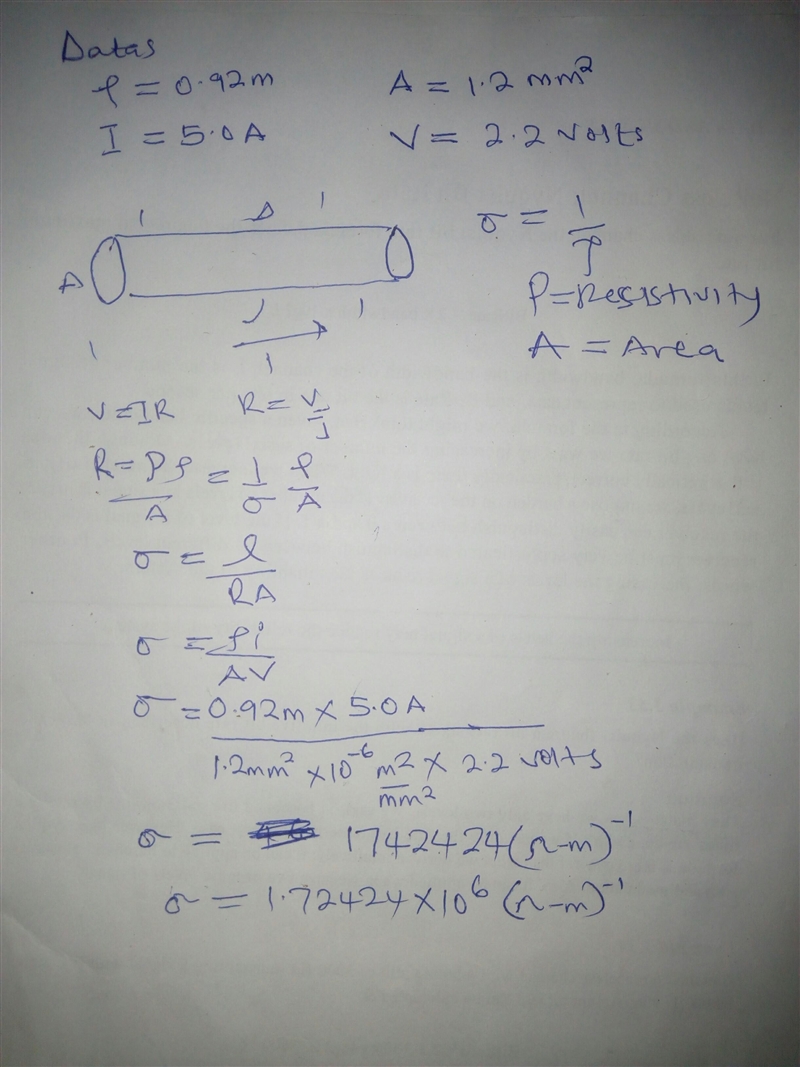 Datas
ρ = 0.92m A = 1.2 mm²
I = 5.0A V = 2.2 Volts
σ = 1/ρ
A
P = Resistivity
A = Area
V = IR R = V/I
R = Pρ/A = 1/σ ρ/A
σ = l/RA
σ = ρi/AV
σ = 0.92m × 5.0A
1.2mm² × 10⁻⁶ m²/mm² × 2.2 volts
σ = 1742424(Ω-m)⁻¹
σ = 1.72424×10⁶ (Ω-m)⁻¹